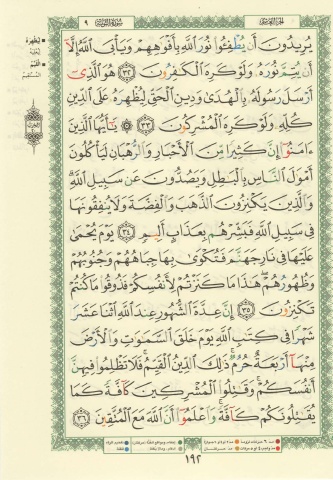 الجزء العاشر
سورة التوبة ٩
يُرِيدُونَ أَن يُطْفِـُٔوا۟ نُورَ ٱللَّهِ بِأَفْوَٰهِهِمْ وَيَأْبَى ٱللَّهُ إِلَّآ
أَن يُتِمَّ نُورَهُۥ وَلَوْ كَرِهَ ٱلْكَـٰفِرُونَ ٣٢ هُوَ ٱلَّذِىٓ
أَرْسَلَ رَسُولَهُۥ بِٱلْهُدَىٰ وَدِينِ ٱلْحَقِّ لِيُظْهِرَهُۥ عَلَى ٱلدِّينِ
كُلِّهِۦ وَلَوْ كَرِهَ ٱلْمُشْرِكُونَ ٣٣ ۞ يَـٰٓأَيُّهَا ٱلَّذِينَ
ءَامَنُوٓا۟ إِنَّ كَثِيرًا مِّنَ ٱلْأَحْبَارِ وَٱلرُّهْبَانِ لَيَأْكُلُونَ
أَمْوَٰلَ ٱلنَّاسِ بِٱلْبَـٰطِلِ وَيَصُدُّونَ عَن سَبِيلِ ٱللَّهِ ۗ
وَٱلَّذِينَ يَكْنِزُونَ ٱلذَّهَبَ وَٱلْفِضَّةَ وَلَا يُنفِقُونَهَا
فِى سَبِيلِ ٱللَّهِ فَبَشِّرْهُم بِعَذَابٍ أَلِيمٍ ٣٤ يَوْمَ يُحْمَىٰ
عَلَيْهَا فِى نَارِ جَهَنَّمَ فَتُكْوَىٰ بِهَا جِبَاهُهُمْ وَجُنُوبُهُمْ
وَظُهُورُهُمْ ۖ هَـٰذَا مَا كَنَزْتُمْ لِأَنفُسِكُمْ فَذُوقُوا۟ مَا كُنتُمْ
تَكْنِزُونَ ٣٥ إِنَّ عِدَّةَ ٱلشُّهُورِ عِندَ ٱللَّهِ ٱثْنَا عَشَرَ
شَهْرًا فِى كِتَـٰبِ ٱللَّهِ يَوْمَ خَلَقَ ٱلسَّمَـٰوَٰتِ وَٱلْأَرْضَ
مِنْهَآ أَرْبَعَةٌ حُرُمٌ ۚ ذَٰلِكَ ٱلدِّينُ ٱلْقَيِّمُ ۚ فَلَا تَظْلِمُوا۟ فِيهِنَّ
أَنفُسَكُمْ ۚ وَقَـٰتِلُوا۟ ٱلْمُشْرِكِينَ كَآفَّةً كَمَا
يُقَـٰتِلُونَكُمْ كَآفَّةً ۚ وَٱعْلَمُوٓا۟ أَنَّ ٱللَّهَ مَعَ ٱلْمُتَّقِينَ ٣٦
١٩٢
لِيُظْهِرَهُ
القَيِّمُ
المستقيم